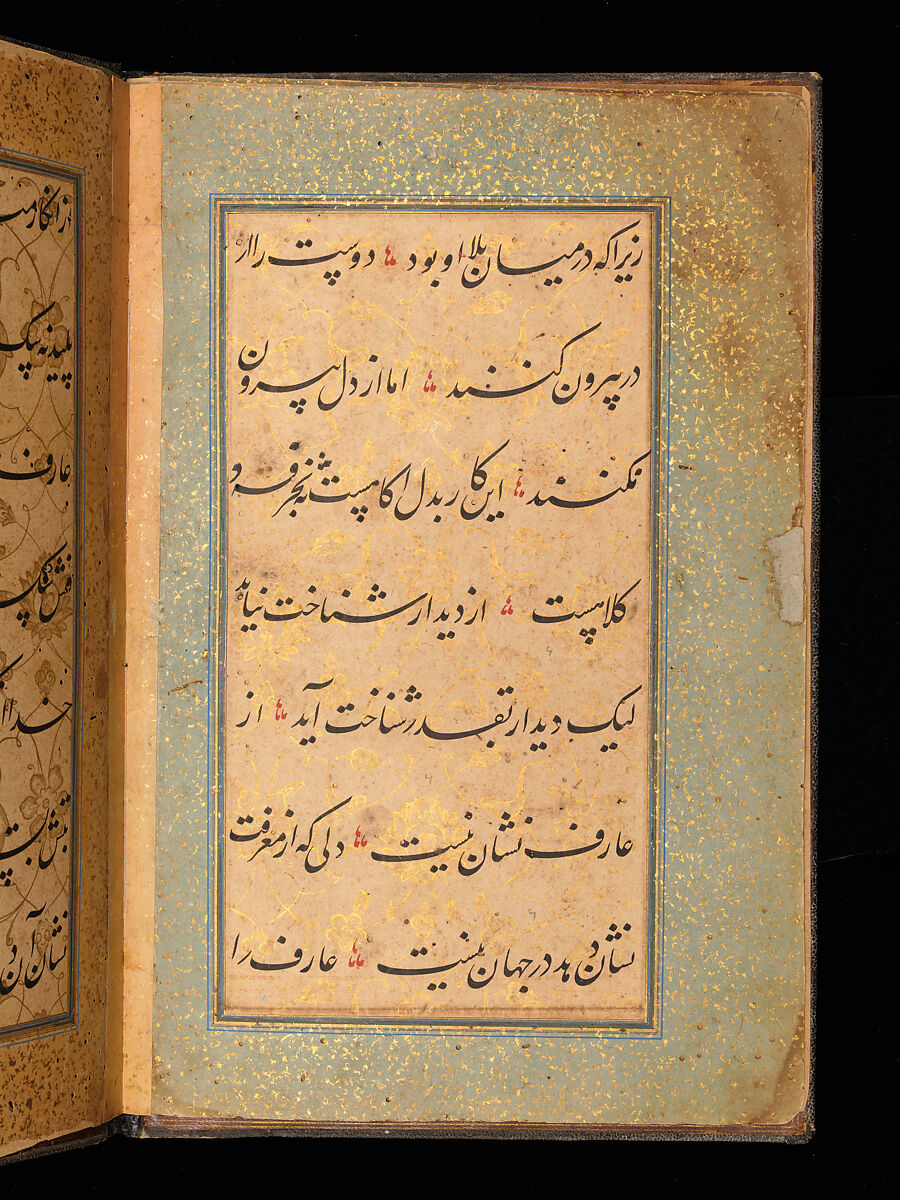 زیرا که در میان بلا او بود دوست را از
در بیرون کنند اما از دل بیرون
نکنند این کار بدل اکاهست نه بخرقه و
کلاهست از دیدار شناخت نیاید
لیک دیدار بقدر شناخت آید از
عارف نشان نیست دلی که از معرفت
نشان دهد در جهان نیست عارف را
عارف
نشان آن